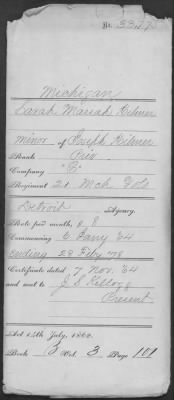 Michigan
Sarah Mariah Gilmer
Minor of Joseph Gilmer
Rank Priv
Company "C"
Regiment 20 Mch Vols
Detroit Agency.
Rate per month, $ 8
Commencing 6 Jany '64
ending 28 Feby '78
Certificate dated 7 Nov. '64
and sent to J. S. Kellogg
Present
Act 14th July, 1862.
Book B Vol. 3 Page 101